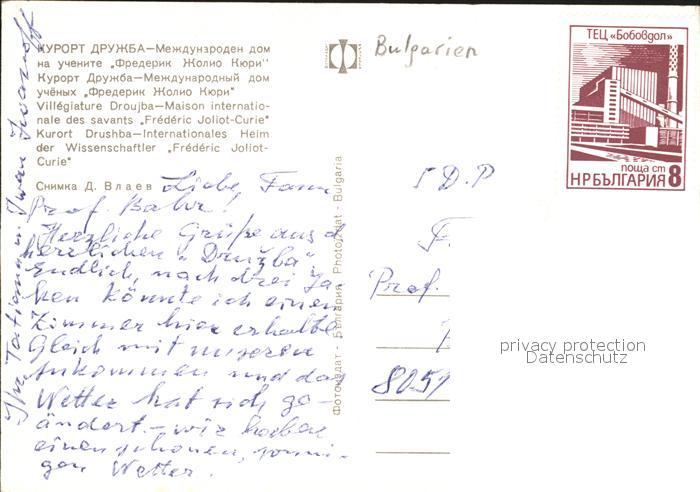 КУРОРТ ДРУЖБА—Международен дом
на учените „Фредерик Жолио Кюри"
Курорт Дружба—Международный дом
учёных „Фредерик Жолио Кюри"
Villégiature Droujba—Maison internatio-
nale des savants „Frédéric Joliot-Curie"
Kurort Drushba—Internationales Heim
der Wissenschaftler „Frédéric Joliot-
Curie"
Снимка Д. Влаев
Liebe Fam.
Prof. Bahr!
Herzliche Grüße aus d
herrlichen „Družba".
Endlich, nach drei Ja-
hren könnte ich einen
Zimmer hier erhalte
Gleich mit unseren
Ankommen und das
Wetter hat sich ge-
ändert. – wir haben
einen schönen, sonni-
gen Wetter.
Ihre Tatiana u. Iwan Iwanoff
Фотоиздат - България Photoizdat - Bulgaria
Bulgarien
ТЕЦ „Бобовдол"
поща ст 8
НР БЪЛГАРИЯ
5 D.P
F.
Prof.
8051
privacy protection
Datenschutz